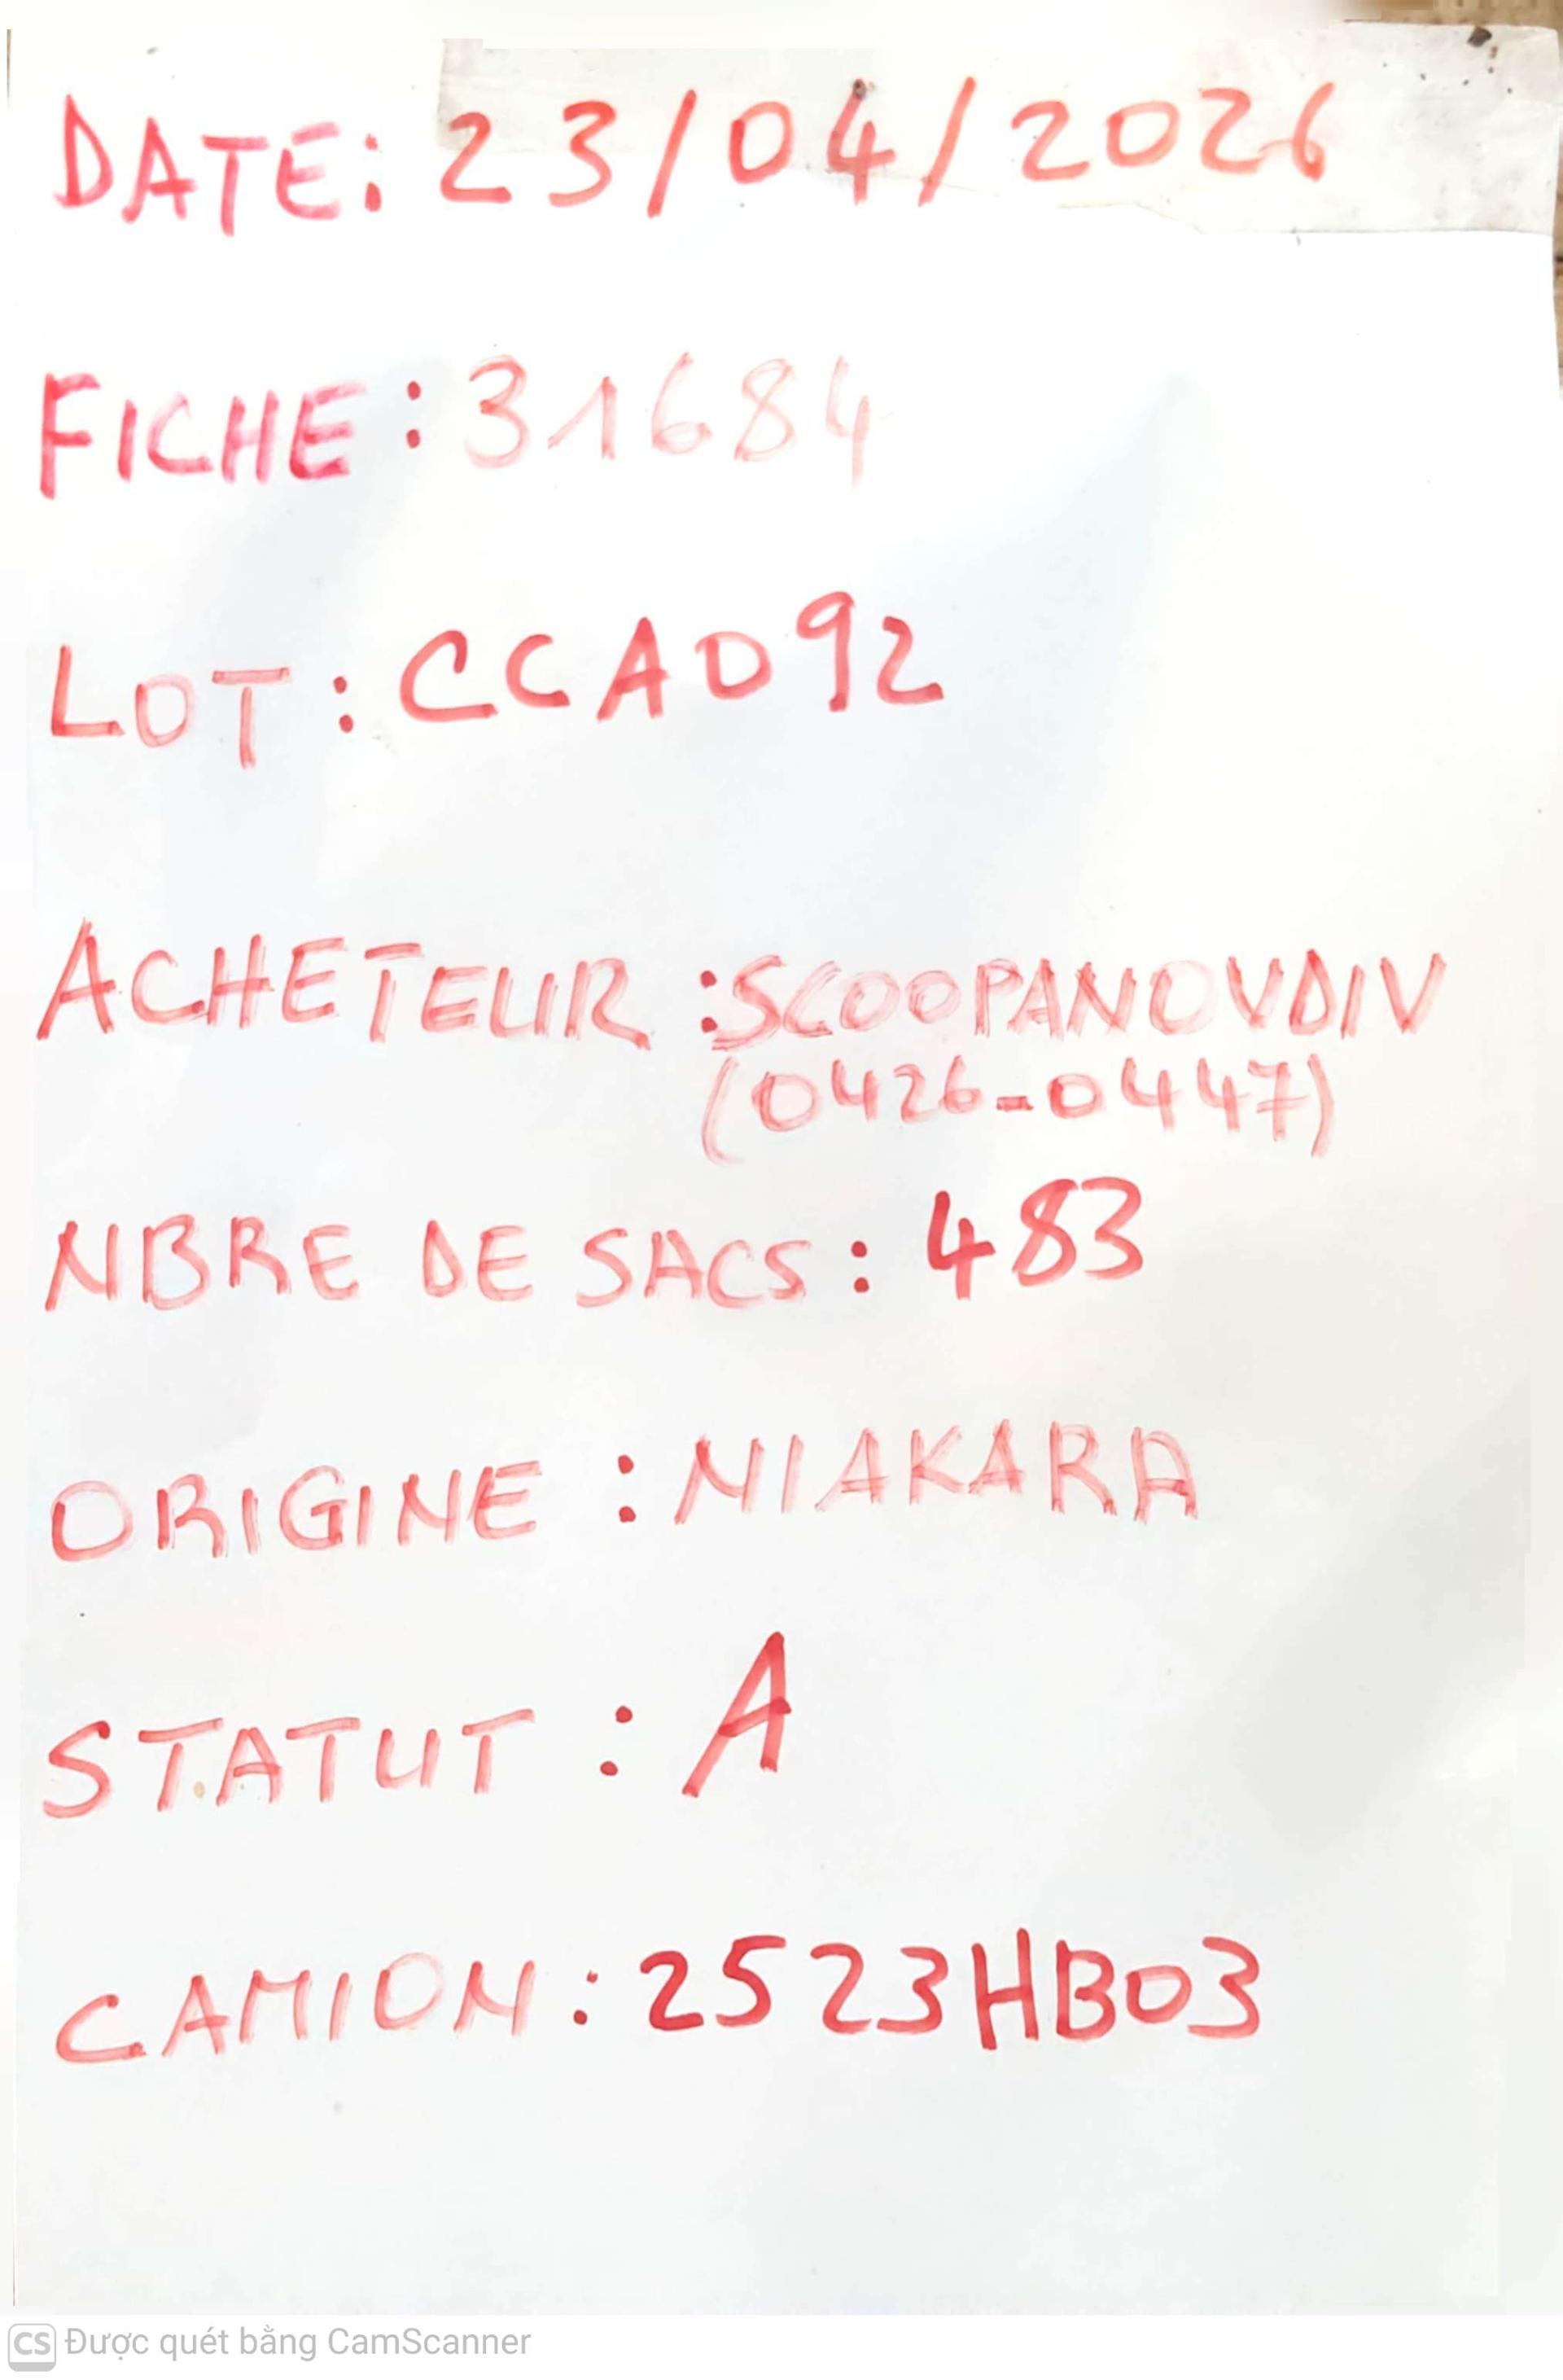 DATE: 23/04/2026
FICHE: 31684
LOT: CCA092
ACHETEUR :SCOOPANOVDIV
(0426-0447)
NBRE DE SACS: 483
ORIGINE : NIAKARA
STATUT : A
CAMION: 2523HB03
CS Được quét bằng CamScanner